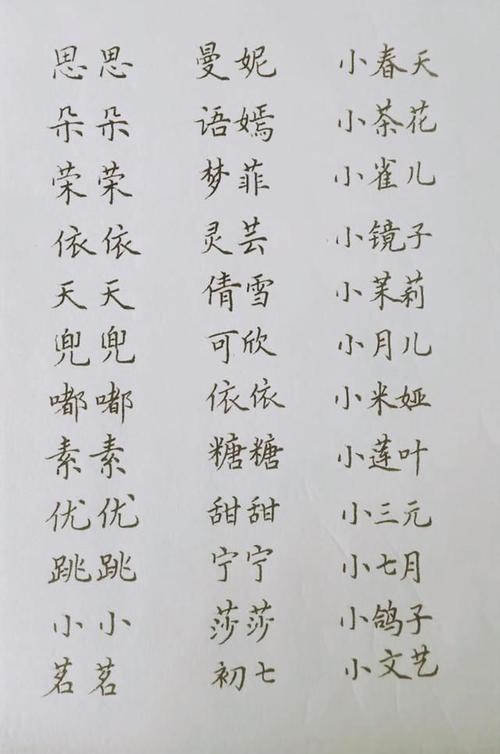 思思 曼妮 小春天
朵朵 语嫣 小茶花
荣荣 梦菲 小雀儿
依依 灵芸 小镜子
天天 倩雪 小茉莉
兜兜 可欣 小月儿
嘟嘟 依依 小米娅
素素 糖糖 小莲叶
优优 甜甜 小三元
跳跳 宁宁 小七月
小小 莎莎 小鸽子
茗茗 初七 小文艺